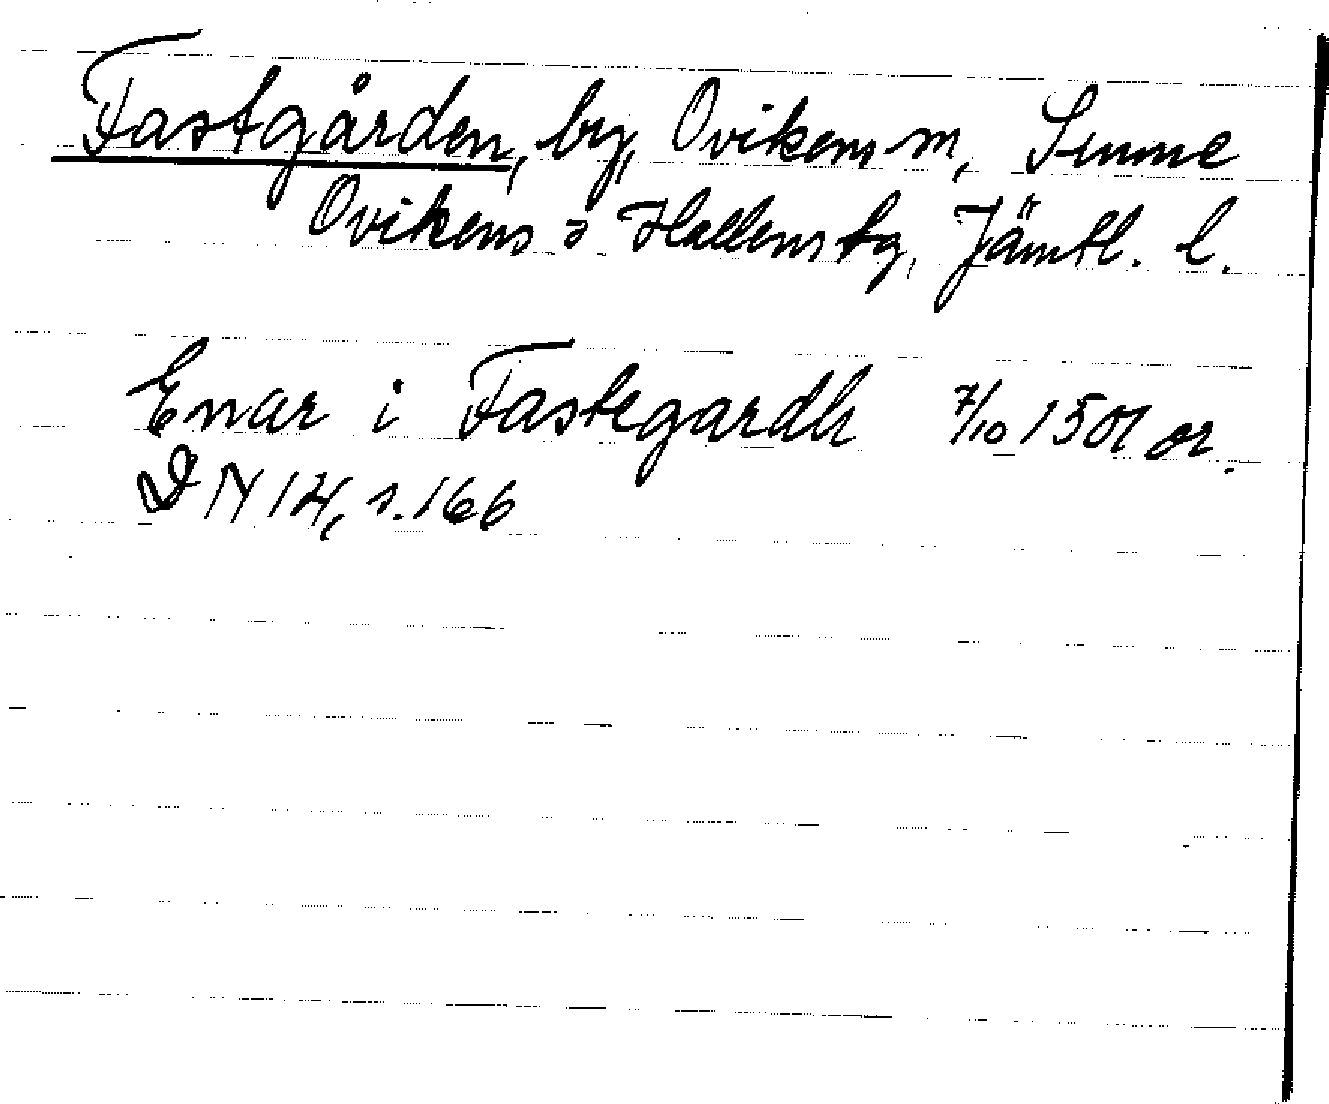 Fastgården, by, Ovikens sn, Sunne
Ovikens o Hallens tg, Jämtl. l.
Enar i Fastegardh 7/10 1501 or.
DN 14, s. 166